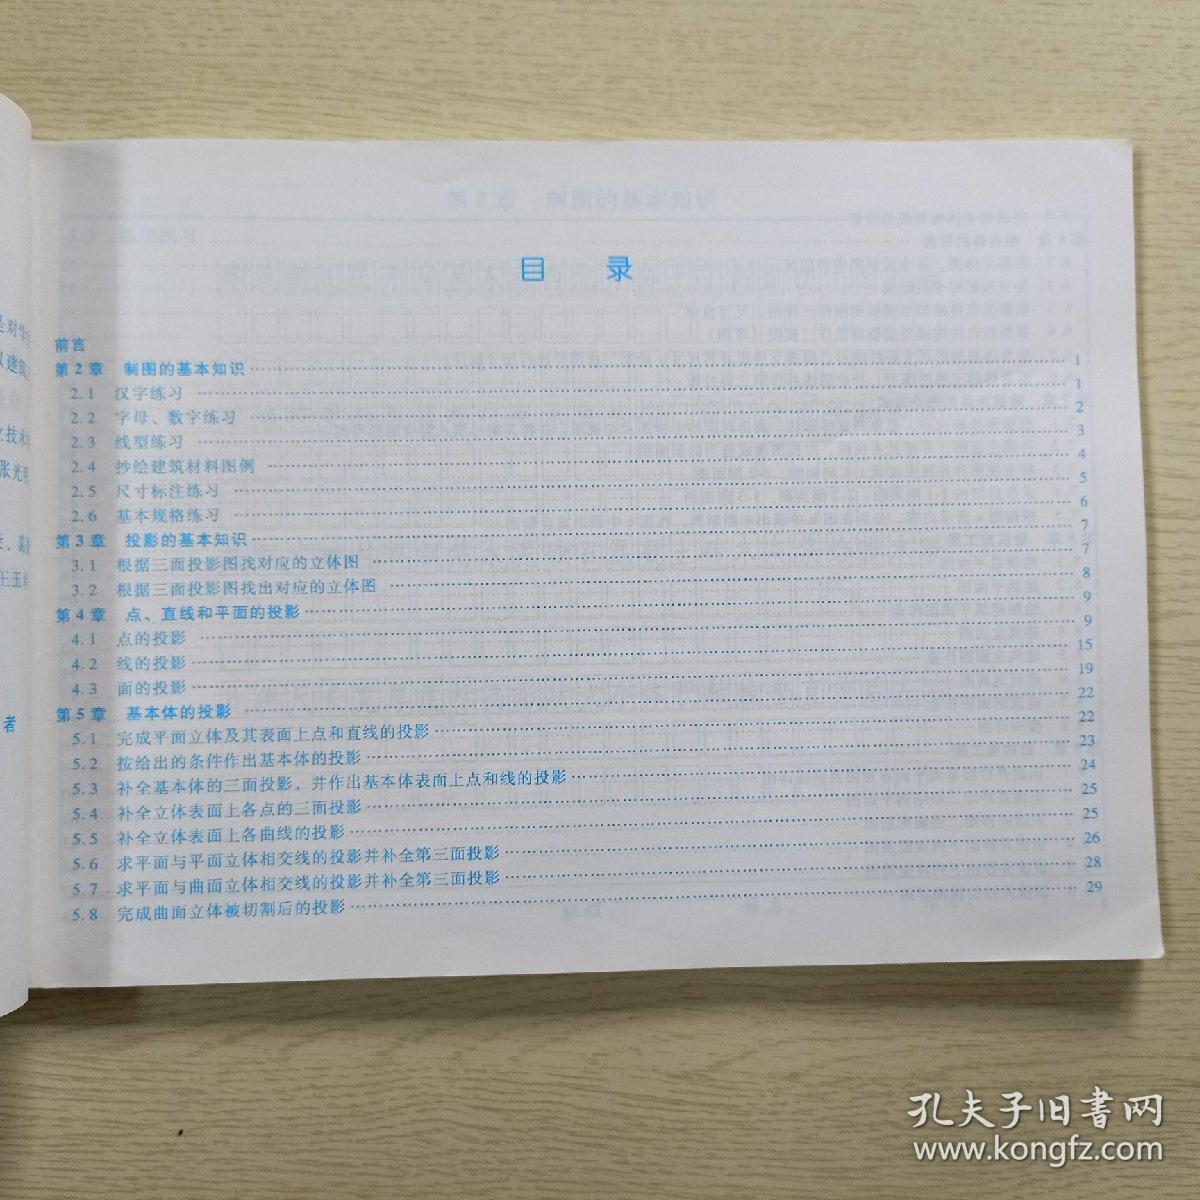 目 录
前言
第2章 制图的基本知识 1
2.1 汉字练习 1
2.2 字母、数字练习 2
2.3 线型练习 3
2.4 抄绘建筑材料图例 4
2.5 尺寸标注练习 5
2.6 基本规格练习 6
第3章 投影的基本知识 7
3.1 根据三面投影图找对应的立体图 7
3.2 根据三面投影图找出对应的立体图 8
第4章 点、直线和平面的投影 9
4.1 点的投影 9
4.2 线的投影 15
4.3 面的投影 19
第5章 基本体的投影 22
5.1 完成平面立体及其表面上点和直线的投影 22
5.2 按给出的条件作出基本体的投影 23
5.3 补全基本体的三面投影,并作出基本体表面上点和线的投影 24
5.4 补全立体表面上各点的三面投影 25
5.5 补全立体表面上各曲线的投影 25
5.6 求平面与平面立体相交线的投影并补全第三面投影 26
5.7 求平面与曲面立体相交线的投影并补全第三面投影 28
5.8 完成曲面立体被切割后的投影 29
者
孔夫子旧书网
www.kongfz.com